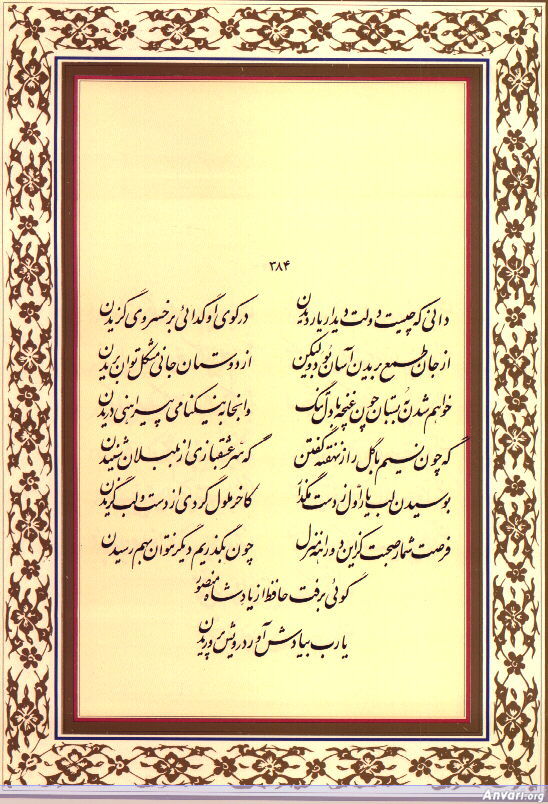 ۳۸۴
دانی که چیست دولت دیدار یار دیدن در کوی او گدائی بر خسروی گزیدن
از جان طمع بریدن آسان بود ولیکن از دوستان جانی مشکل توان بریدن
خواهم شدن ببستان چون غنچه با دل تنگ وانجا به نیکنامی پیراهنی دریدن
گه چون نسیم با گل راز نهفته گفتن گه سر عشقبازی از بلبلان شنیدن
بوسیدن لب یار اول ز دست مگذار کاخر ملول گردی از دست و لب گزیدن
فرصت شمار صحبت کز این دو راهه منزل چون بگذریم دیگر نتوان بهم رسیدن
گوئی برفت حافظ از یاد شاه منصور
یارب بیادش آور درویش پروریدن
Anvari.org